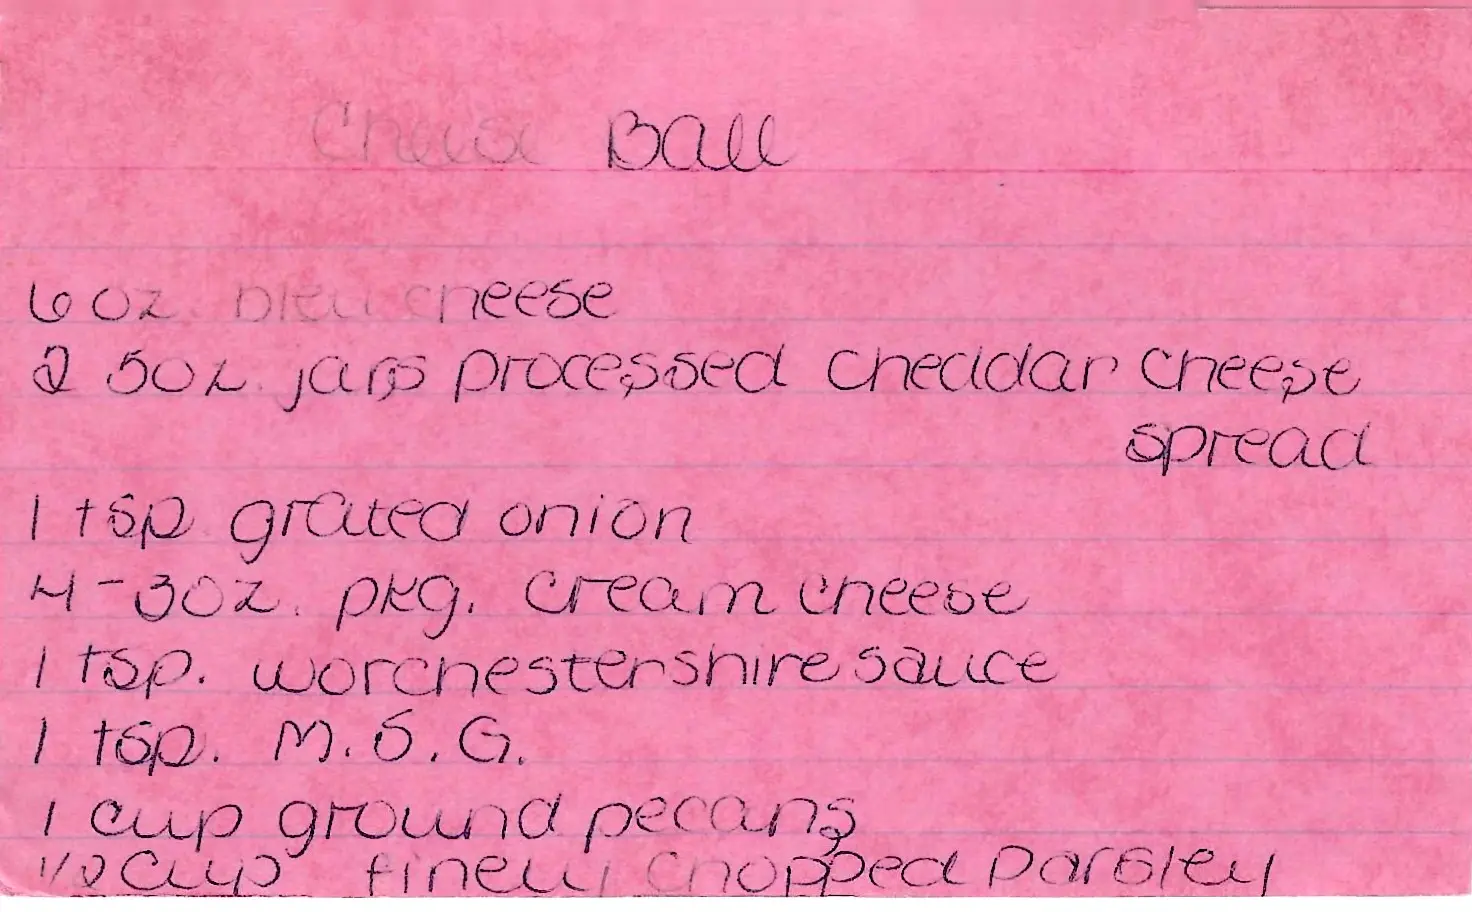 Cheese Ball
6 oz. bleu cheese
2 5oz. jars processed cheddar cheese
spread
1 tsp. grated onion
4-3oz. pkg. cream cheese
1 tsp. worchestershire sauce
1 tsp. M.S.G.
1 cup ground pecans
1/2 cup finely chopped parsley